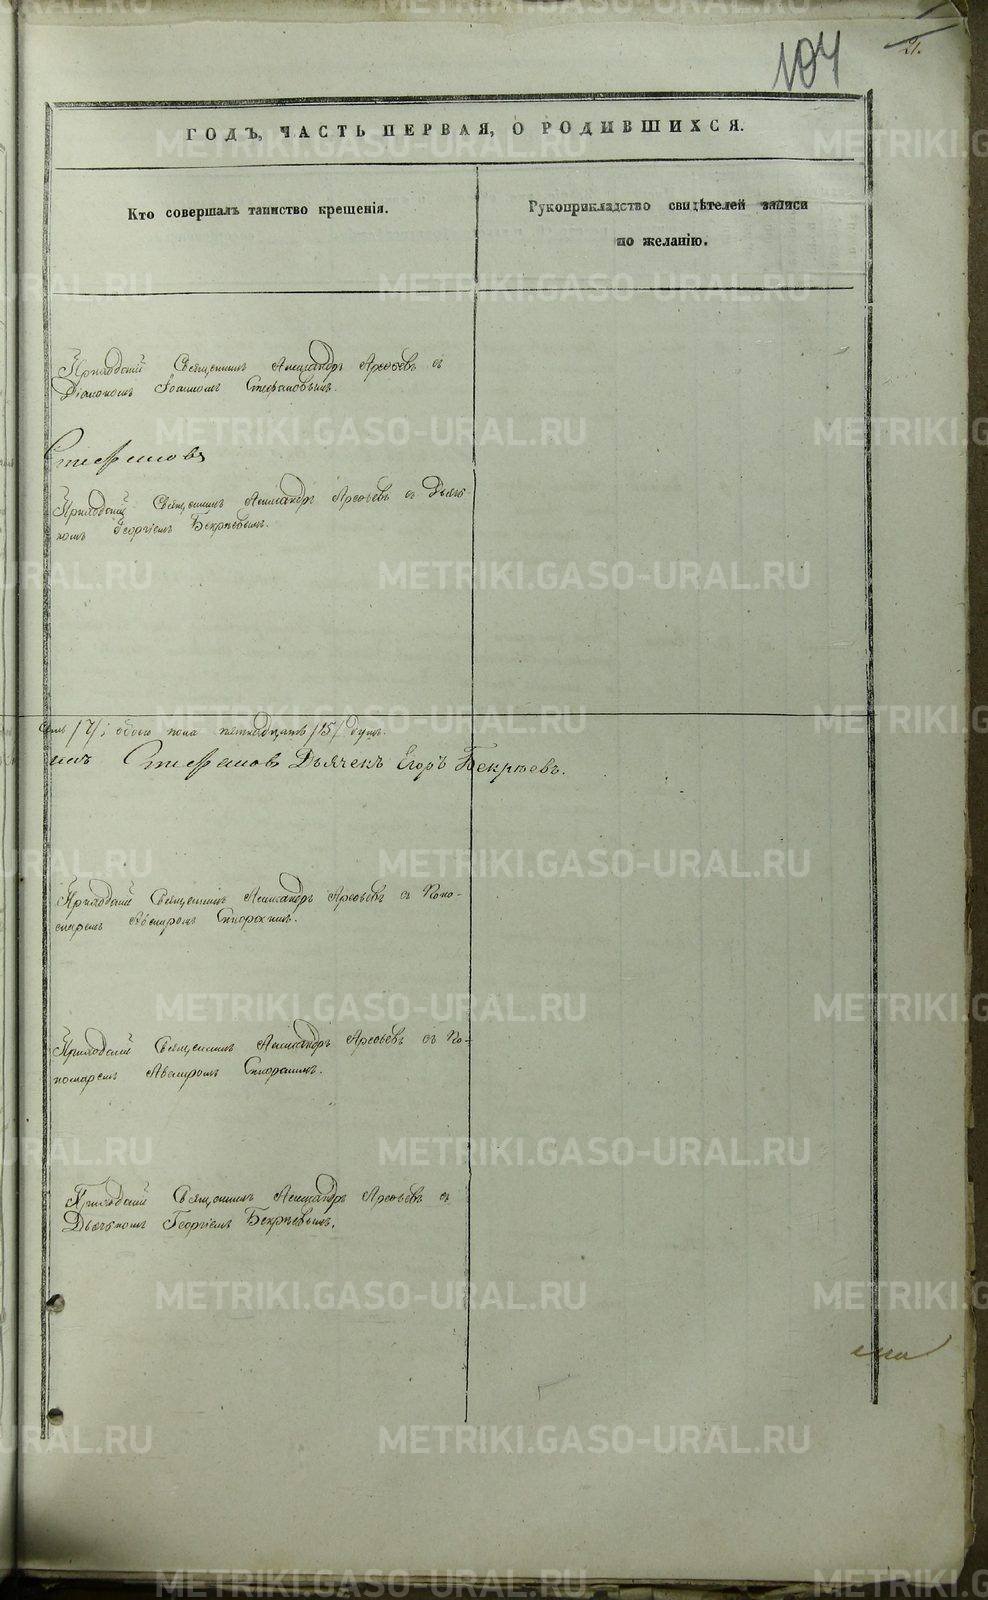 104
21.
ГОДЪ, ЧАСТЬ ПЕРВАЯ, О РОДИВШИХСЯ.
Кто совершалъ таинство крещенія.
Рукоприкладство свидѣтелей записи
по желанію.
Приходскій Священникъ Александръ Арефьевъ съ
Діакономъ Іоанномъ Стефановымъ.
Стефановъ
Приходскій Священникъ Александръ Арефьевъ съ Дьяч-
комъ Георгіемъ Бекрѣевымъ.
семь /7/; обоего пола пятнадцать /15/ душъ.
Стефановъ Дьячекъ Егоръ Бекрѣевъ.
Приходскій Священникъ Александръ Арефьевъ съ Поно-
маремъ
Приходскій Священникъ Александръ Арефьевъ съ По-
номаремъ
Приходскій Священникъ Александръ Арефьевъ съ
Дьячкомъ Георгіемъ Бекрѣевымъ.
METRIKI.GASO-URAL.RU